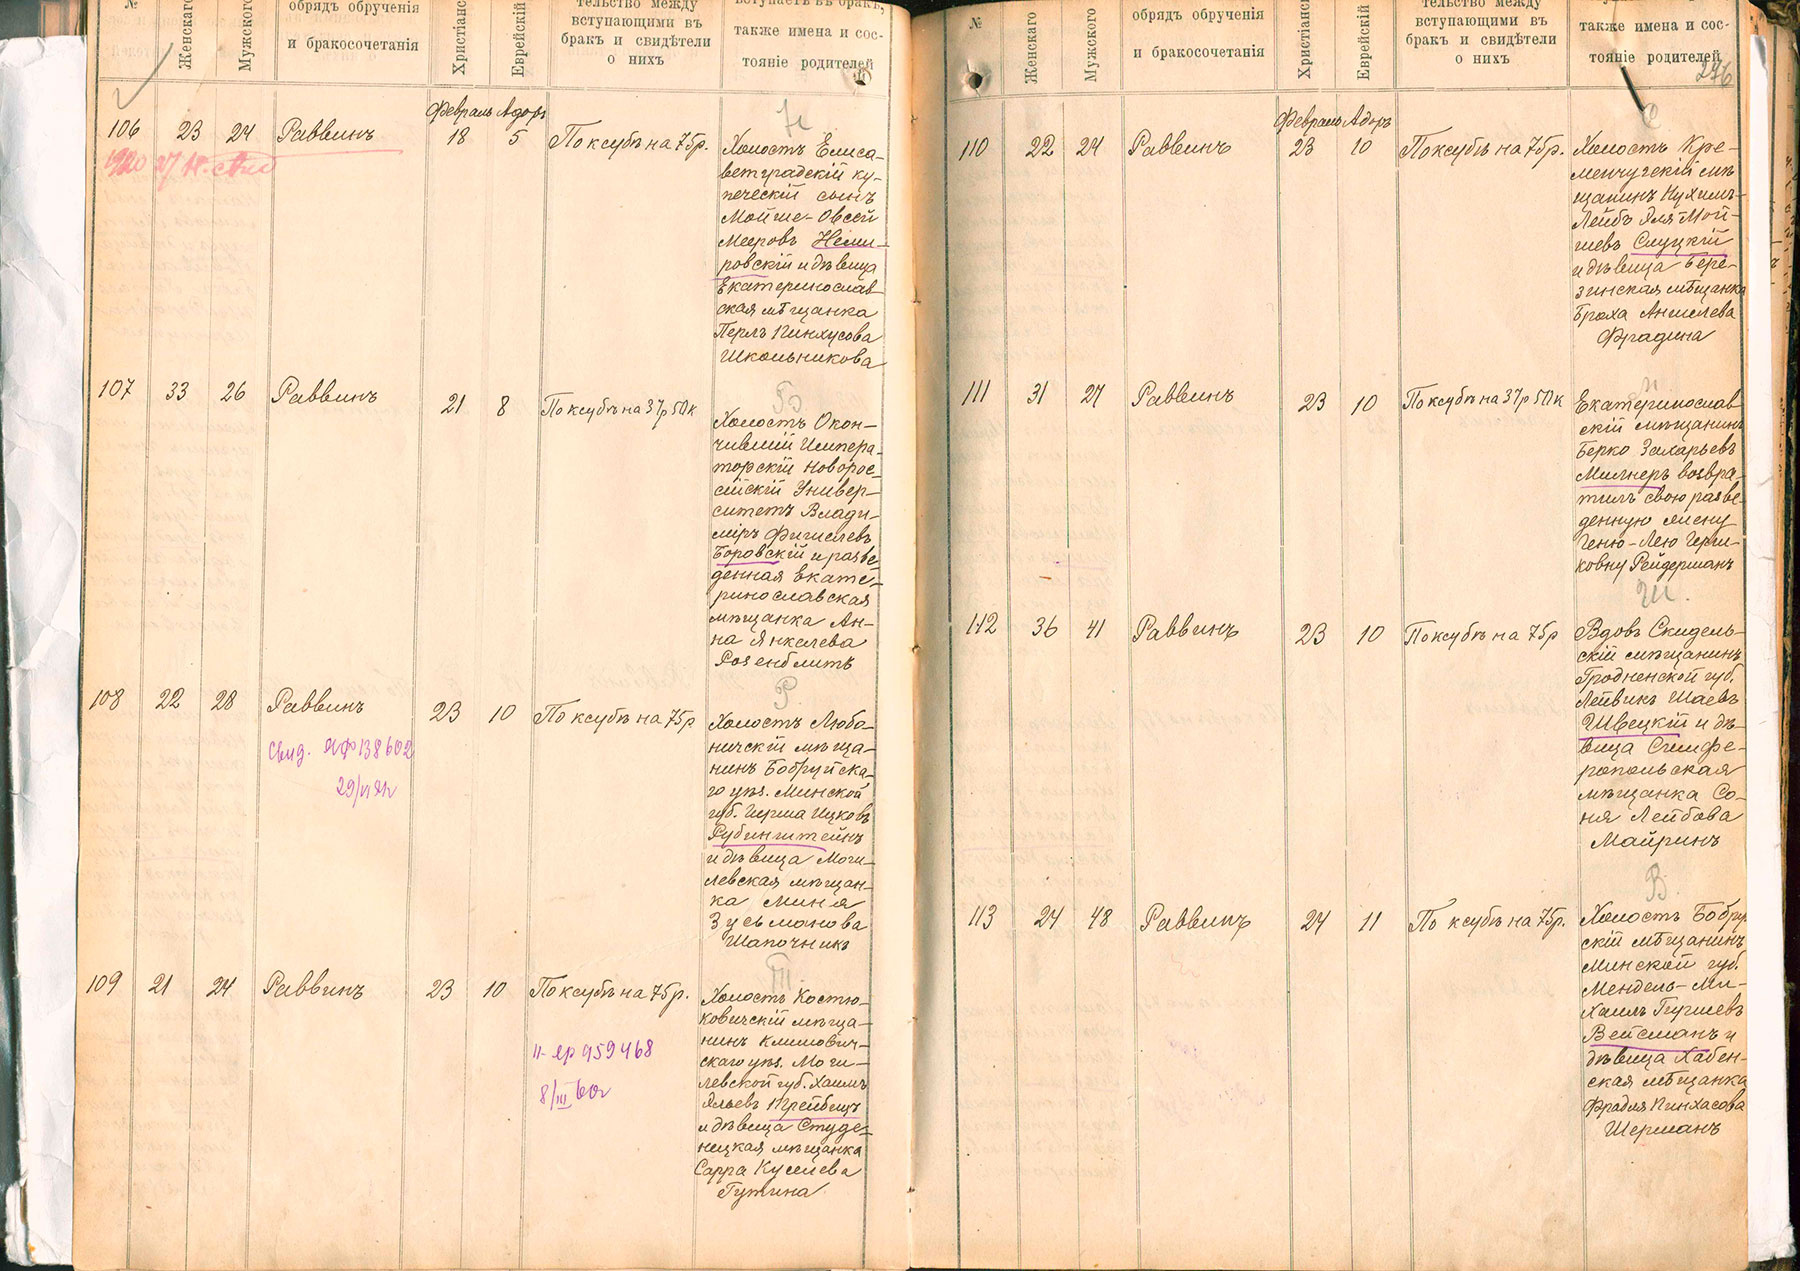 №
Женскаго
Мужского
обрядъ обрученія
и бракосочетанія
Христіанс
Еврейскій
тельство между
вступающими въ
бракъ и свидѣтели
о нихъ
вступаетъ въ бракъ,
также имена и сос-
тояніе родителей
Февраль Адаръ
Н
106 23 24 Раввинъ 18 5 По ксубѣ на 75р.
Холостъ Елиса-
ветградскій ку-
печескій сынъ
Мойше-Овсей
Мееровъ Неми-
ровскій и дѣвица
Екатеринослав-
ская мѣщанка
Перлъ Пинхусова
Школьникова
107 33 26 Раввинъ 21 8 По ксубѣ на 37р 50к
Б
Холостъ Окон-
чившій Импера-
торскій Новорос-
сійскій Универ-
ситетъ Влади-
міръ Фишелевъ
Боровскій и разве-
денная Екате-
ринославская
мѣщанка Ан-
на Янкелева
Розенблитъ
108 22 28 Раввинъ 23 10 По ксубѣ на 75р
Свид. ЯФ 138602
Р.
Холостъ Любо-
ничскій мѣща-
нинъ Бобруйска-
го уѣз. Минской
губ. Гирша Ицковъ
Рубинштейнъ
и дѣвица Моги-
левская мѣщан-
ка Миня
Зусьманова
Шапочникъ
109 21 24 Раввинъ 23 10 По ксубѣ на 75р.
II-яр 959468
8/III 60г
Холостъ Костю-
ковичскій мѣща-
нинъ Климович-
скаго уѣз. Моги-
левской губ. Хаимъ
и дѣвица Студе-
нецкая мѣщанка
Сарра Куселева
Гутина
№
Женскаго
Мужского
обрядъ обрученія
и бракосочетанія
Христіанс
Еврейскій
тельство между
вступающими въ
бракъ и свидѣтели
о нихъ
также имена и сос-
тояніе родителей
276
Февраль Адаръ
С
110 22 24 Раввинъ 23 10 По ксубѣ на 75р.
Холостъ Кре-
менчугскій мѣ-
щанинъ Кухимъ-
Лейбъ Эля Мой-
шевъ Слуцкій
и дѣвица Бере-
зинская мѣщанка
Броха Аншелева
Фрадина
111 31 27 Раввинъ 23 10 По ксубѣ на 37р 50к
Екатеринослав-
скій мѣщанинъ
Берко Захарьевъ
Милнеръ возвра-
тилъ свою разве-
денную жену
Геню-Лею Герш-
ковну Рейдерманъ
Ш.
112 36 41 Раввинъ 23 10 По ксубѣ на 75р
Вдовъ Скидель-
скій мѣщанинъ
Гродненской губ.
Лейвикъ Шаевъ
Швецкій и дѣ-
вица Симфе-
ропольская
мѣщанка Со-
ня Лейбова
Майринъ
В.
113 24 48 Раввинъ 24 11 По ксубѣ на 75р.
Холостъ Бобруй
скій мѣщанинъ
Минской губ.
Мендель-Ми-
хаилъ Гиршевъ
Вейсманъ и
дѣвица Хабен-
ская мѣщанка
Фрадля Пинхасова
Шерманъ